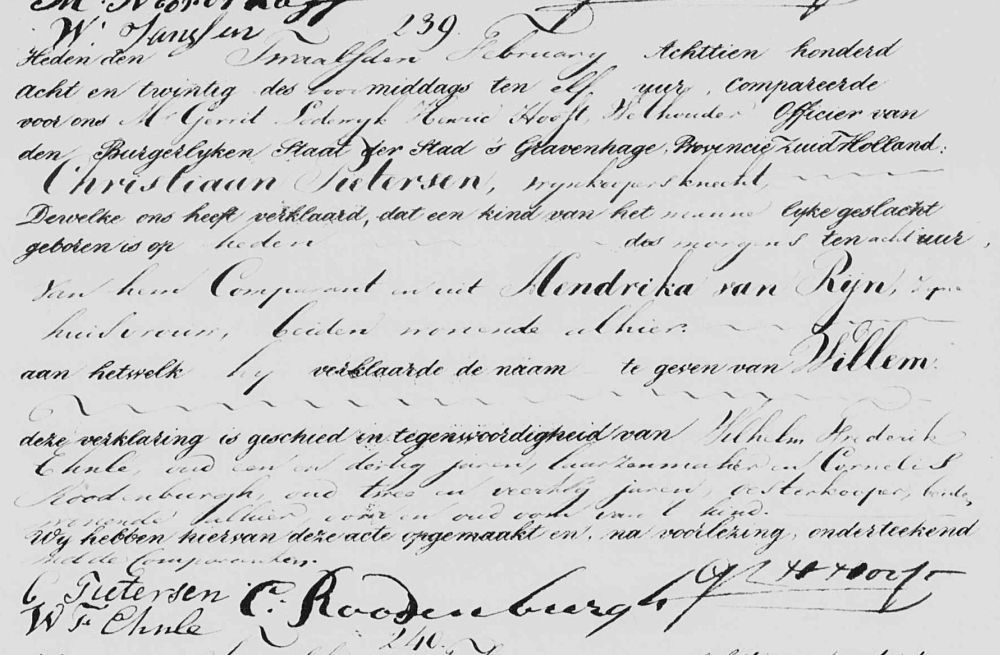 W. Janssen
239.
Heden den Twaalfden February Achttien honderd
acht en twintig des voormiddags ten elf uur, compareerde
voor ons Mr Gerrit Lodewyk Henric Hooft, Wethouder Officier van
den Burgerlyken Staat der Stad 's Gravenhage, Provincie Zuid Holland:
Christiaan Pietersen, wynkoopersknecht,
Dewelke ons heeft verklaard, dat een kind van het manne lyke geslacht
geboren is op heden des morgens ten acht uur,
van hem Comparant en uit Hendrika van Rijn, zyne
huisvrouw, beiden wonende alhier.
aan hetwelk hy verklaarde de naam te geven van Willem.
deze verklaring is geschied in tegenwoordigheid van Wilhelm Frederik
Ehnle, oud een en dertig jaren, laarzenmaker en Cornelis
Roodenburgh, oud twee en veertig jaren, oesterkooper, beide
wonende alhier en oud oom van t kind.
Wy hebben hiervan deze acte opgemaakt en, na voorlezing, onderteekend
met de Comparanten.
C Pietersen
C. Roodenburgh
W F Ehnle
240.